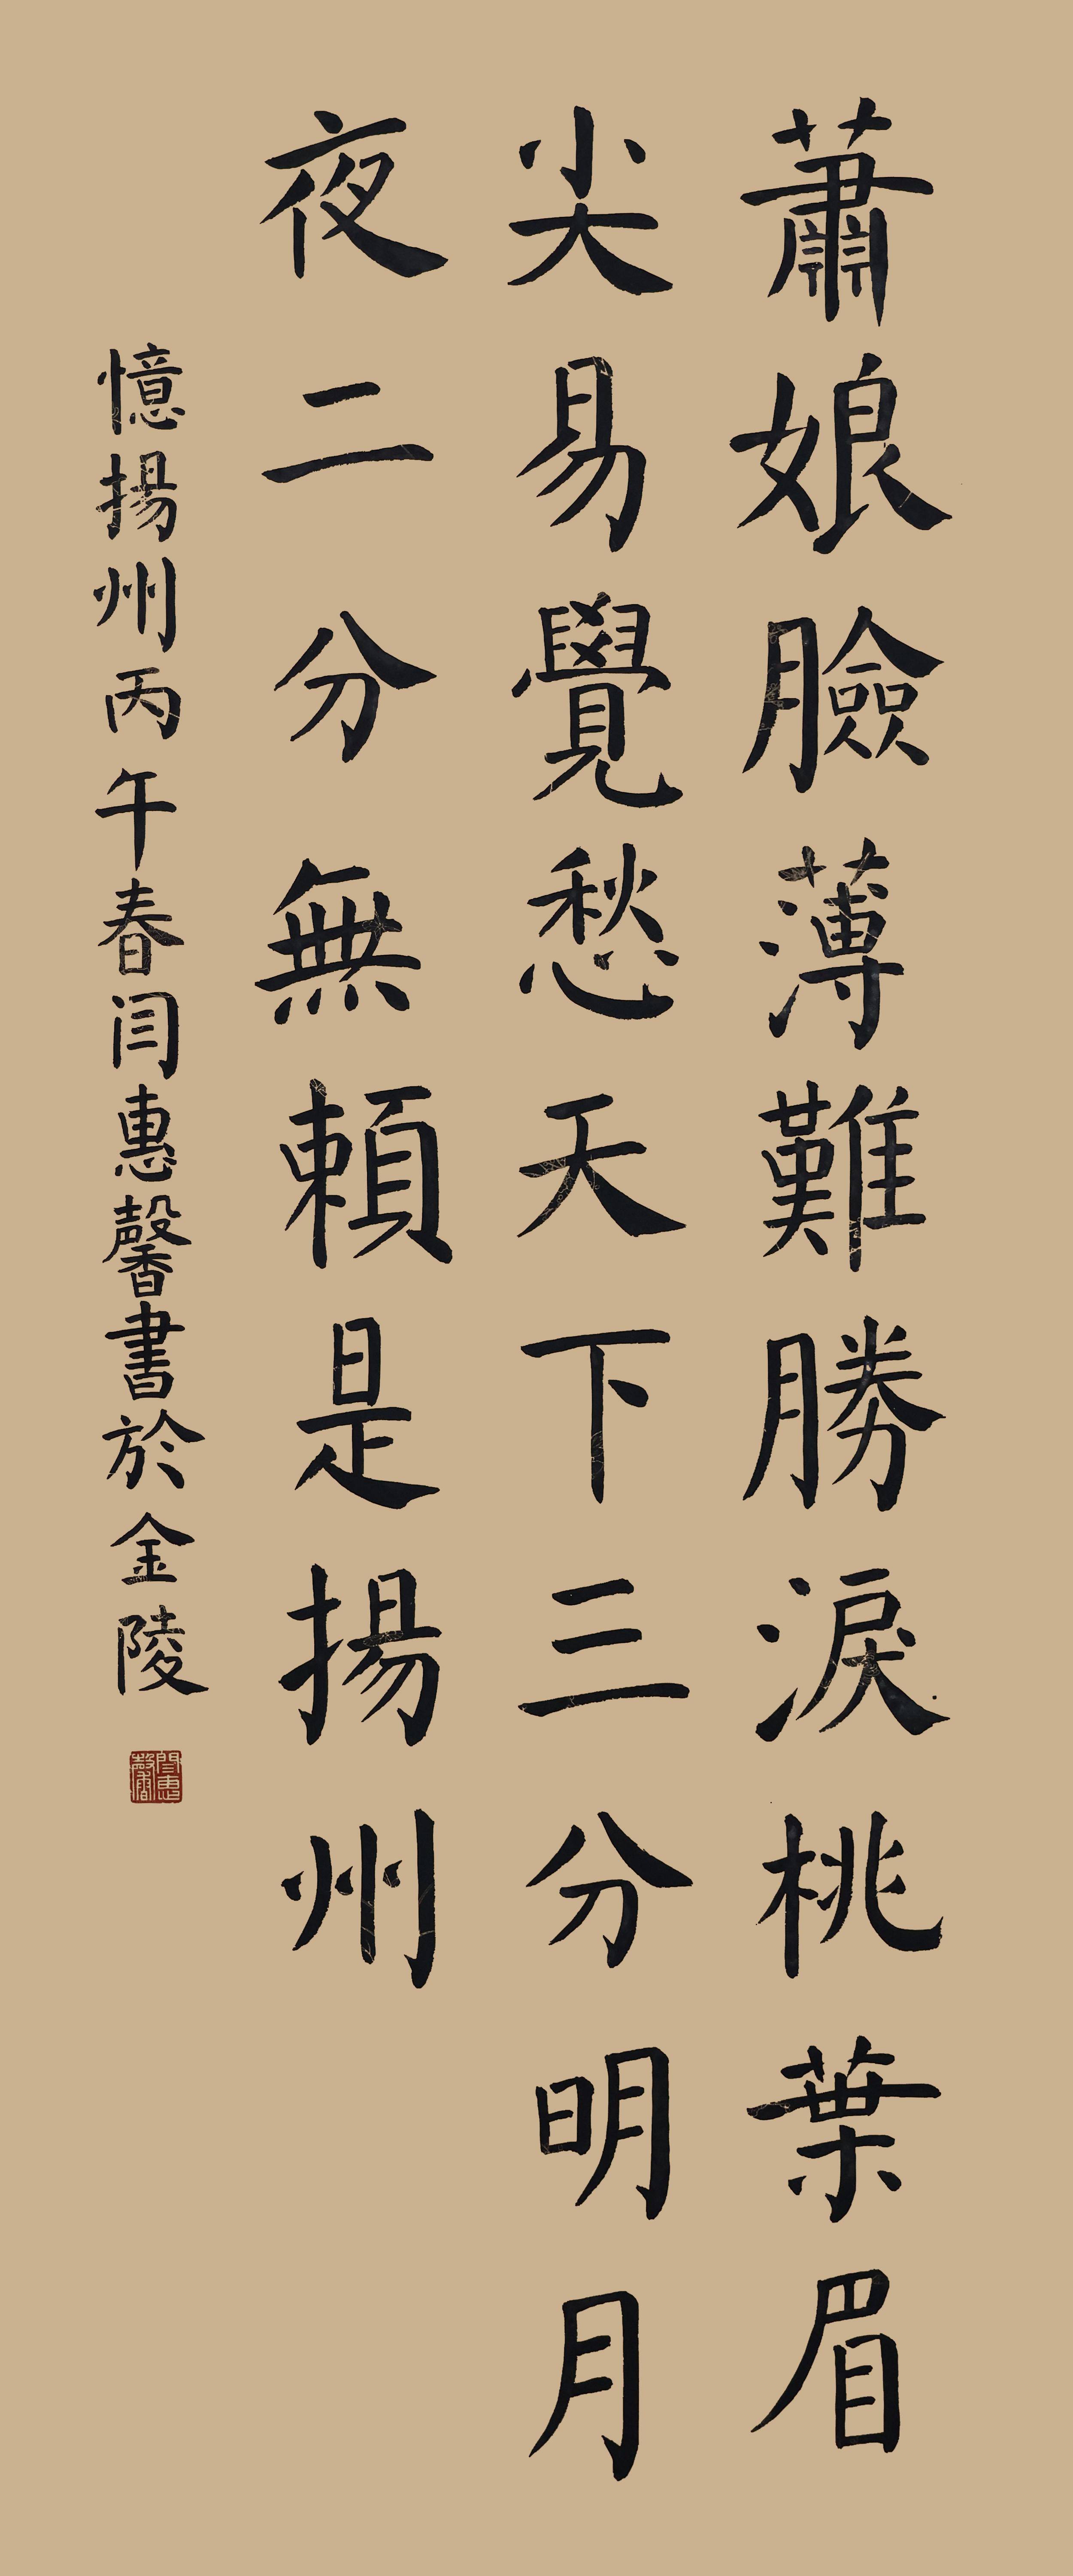 蕭娘臉薄難勝淚桃葉眉
尖易覺愁天下三分明月
夜二分無賴是揚州
憶揚州丙午春闫惠馨書於金陵
閆惠馨